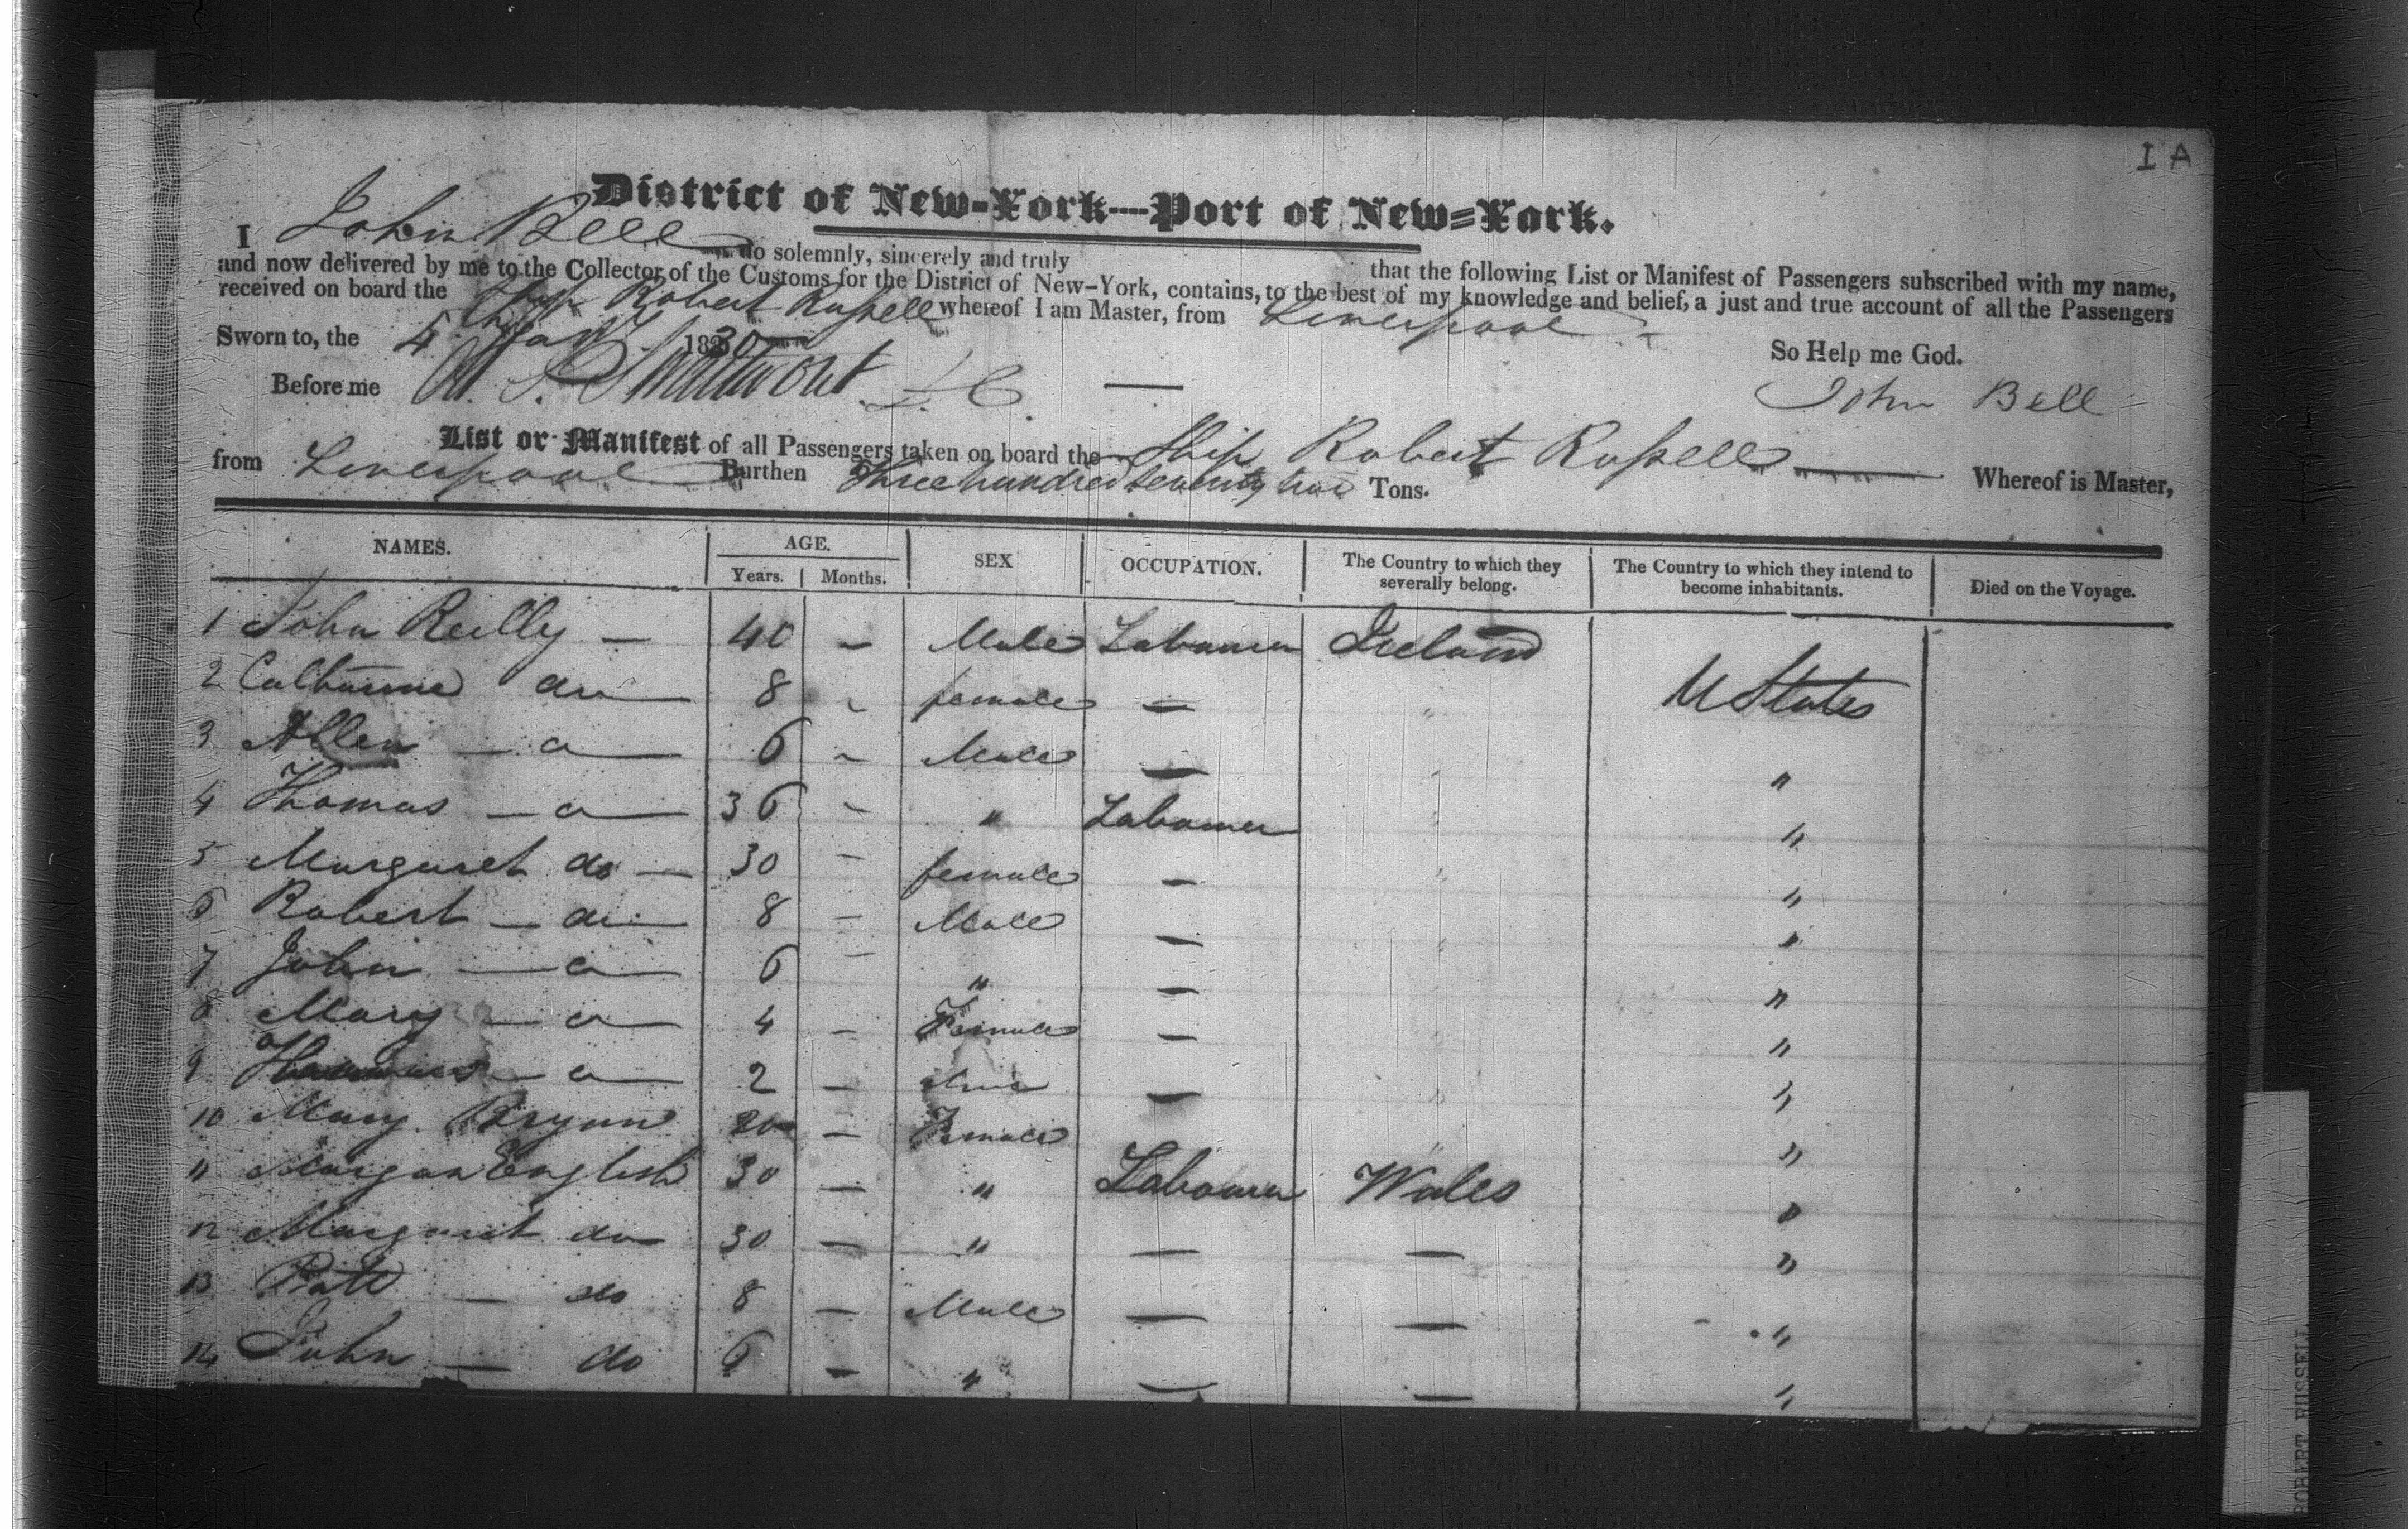 I A
District of New-York—Port of New-York.
I John Bell do solemnly, sincerely and truly that the following List or Manifest of Passengers subscribed with my name,
and now delivered by me to the Collector of the Customs for the District of New-York, contains, to the best of my knowledge and belief, a just and true account of all the Passengers
received on board the Ship Robert Russell whereof I am Master, from Liverpool
Sworn to, the 4 Jany 1830 So Help me God.
Before me John Bell
List or Manifest of all Passengers taken on board the Ship Robert Russell Whereof is Master,
from Liverpool Burthen Three hundred seventy two Tons.
NAMES. AGE. SEX OCCUPATION. The Country to which they severally belong. The Country to which they intend to become inhabitants. Died on the Voyage.
Years. Months.
1 John Reilly — 40 — Male Labourer Ireland
2 Catharine do 8 - female — " U States
3 Allen — do 6 - Male — " "
4 Thomas — do 36 - " Labourer " "
5 Margaret do — 30 - female — " "
6 Robert — do 8 - Male — " "
7 John — do 6 - " — " "
8 Mary — do 4 - Female — " "
9 — do 2 — — "
10 Mary Bryan — Female "
11 Morgan English 30 — " Labourer Wales "
12 Margaret do 30 — " — — "
13 Patt — do 8 — Male — — "
14 John — do 6 — " — — "
ROBERT RUSSELL